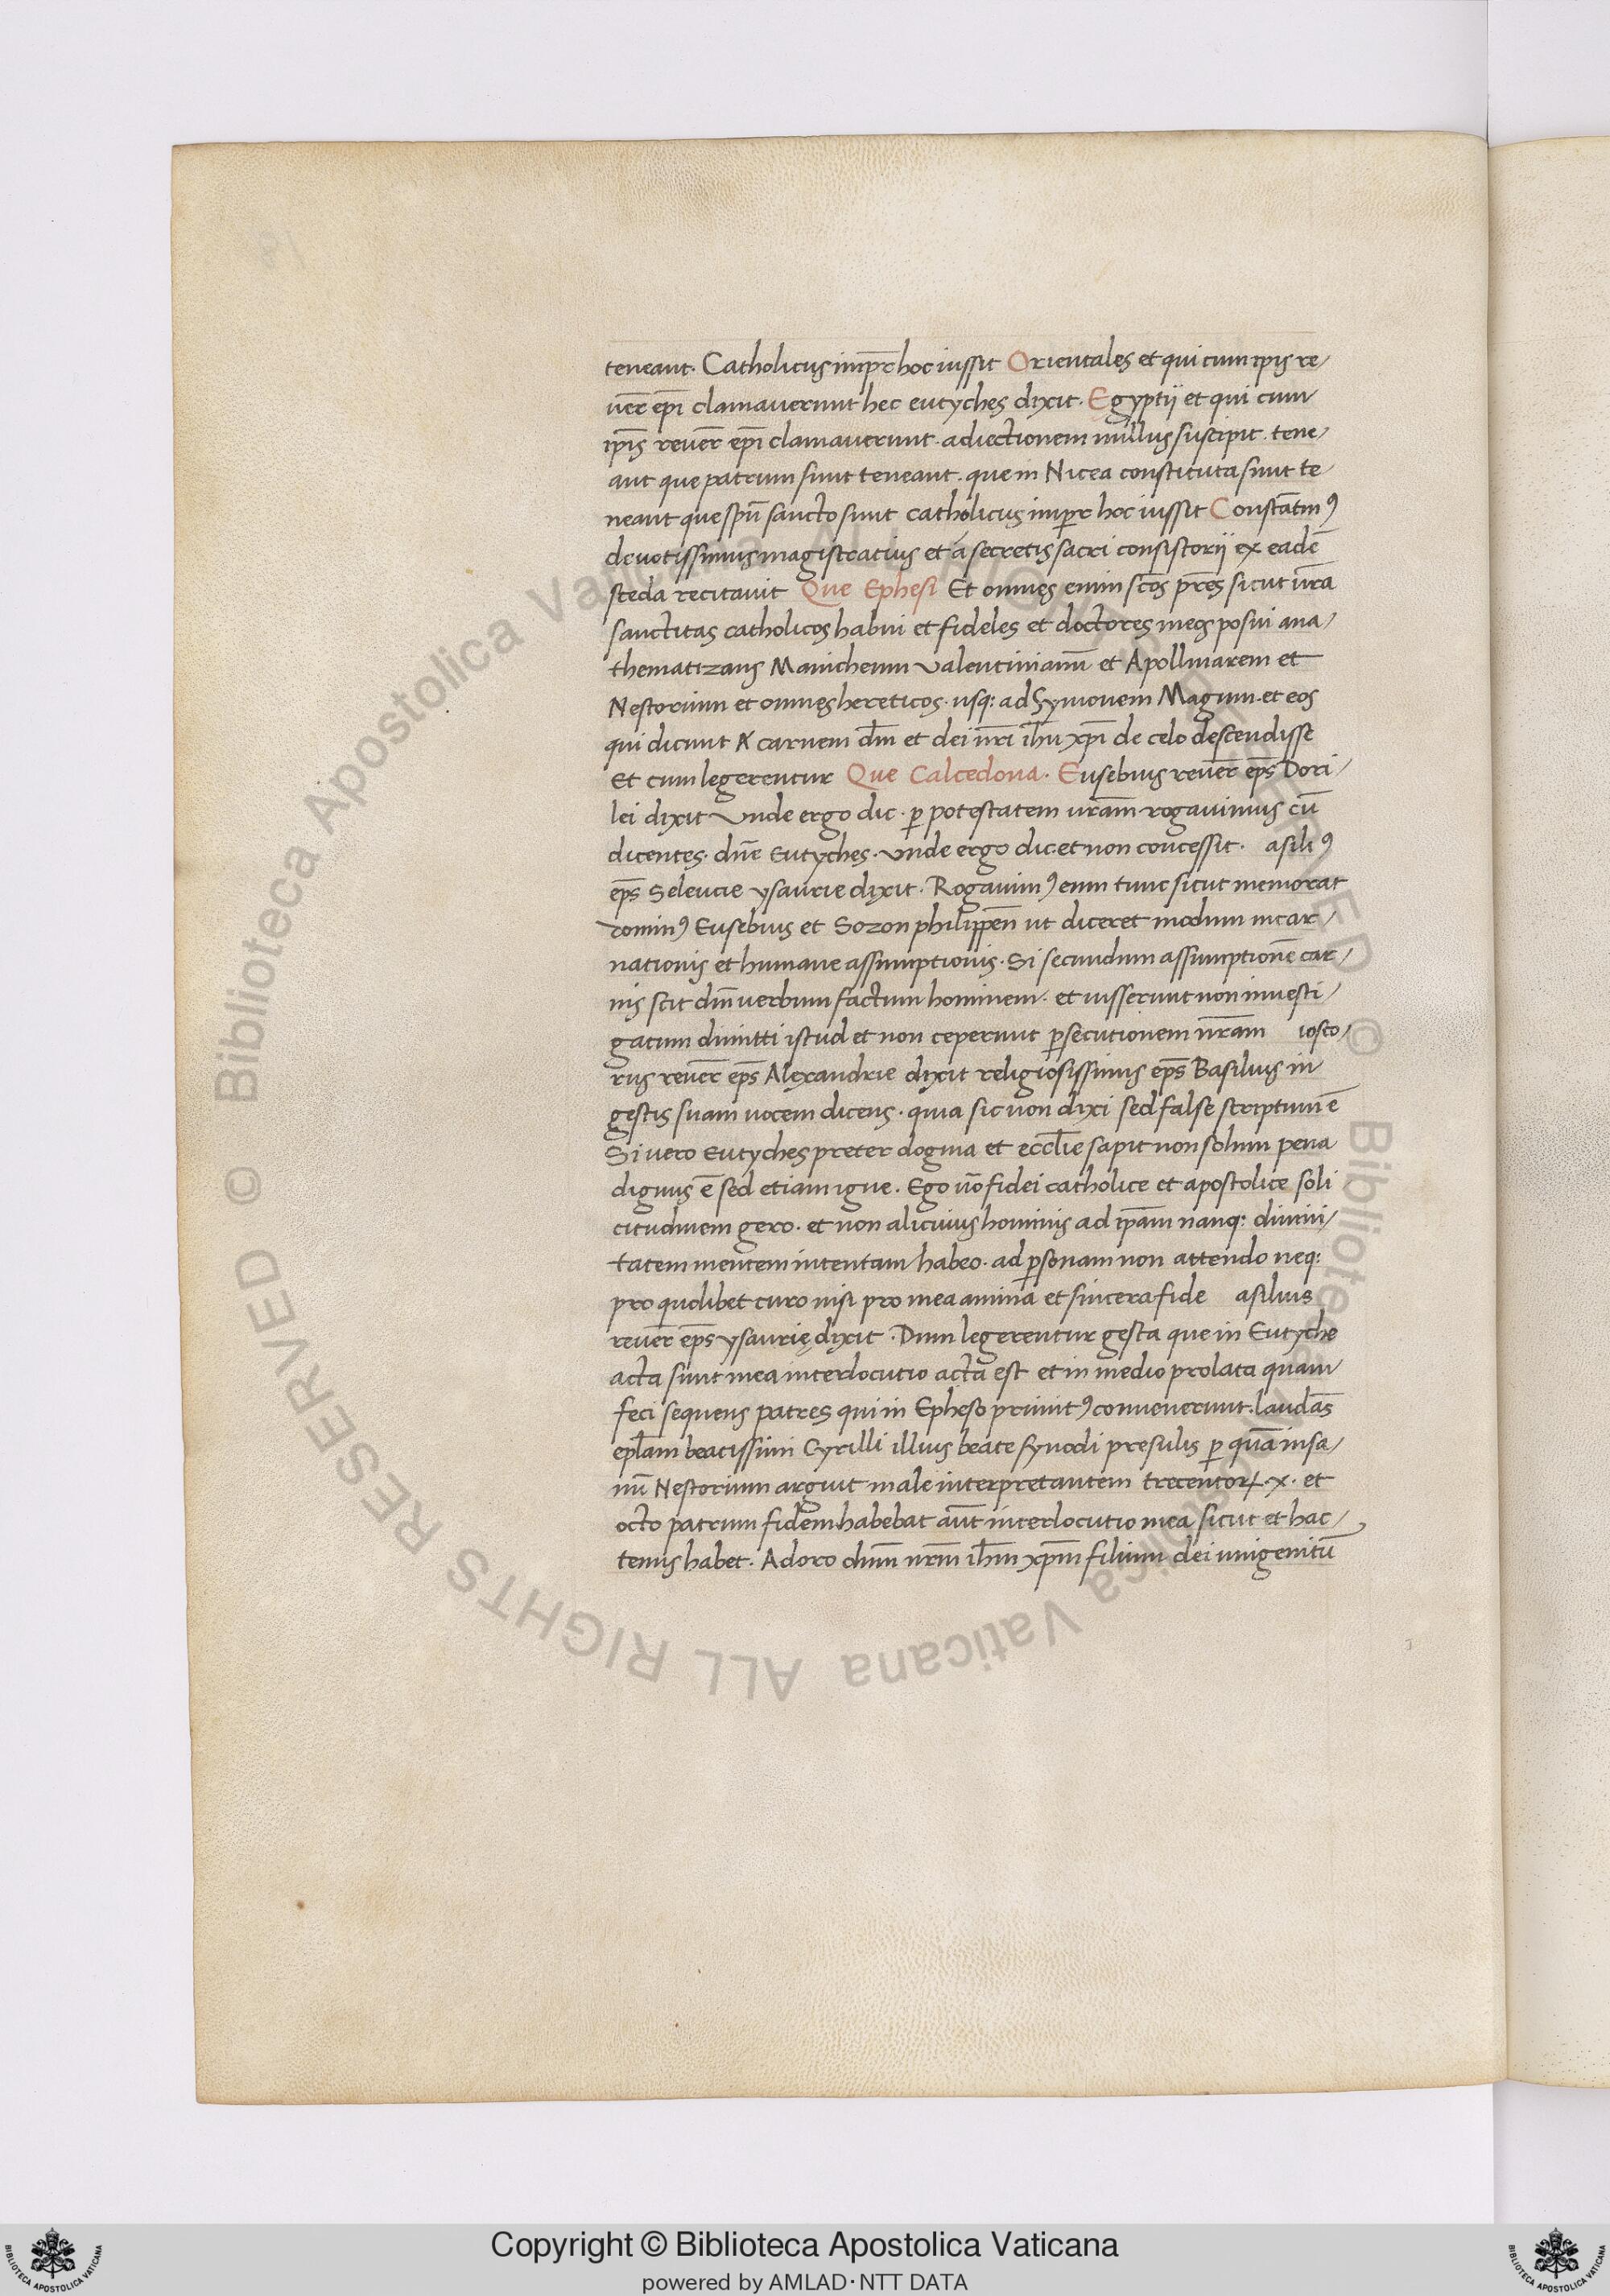 teneant. Catholicus imp̄r hoc iussit Orientales et qui cum ipis re/
uer̄ ep̄i clamauerunt hec eutyches dixit. Egyptii et qui cum
ip̄is reuer̄ ep̄i clamauerunt. adiectionem nullus suscipit. tene/
ant que patrum sunt teneant. que in Nicea constituta sunt te/
neant que sp̄u sancto sunt catholicus imp̄r hoc iussit Constātinꝰ
deuotissimus magistratius et a secretis sacri consistorii ex eadē
sceda recitauit Que Ephesi Et omnes enim sc̄os pr̄es sicut ur̄a
sanctitas catholicos habui et fideles et doctores meos posui ana/
thematizans Manicheum Valentinianū et Apollinarem et
Nestorium et omnes hereticos. usq: ad Symonem Magum. et eos
qui dicunt A carnem dm̄ et dei nr̄i ih̄u xp̄i de celo descendisse
Et cum legerentur Que Calcedona. Eusebius reuer̄ ep̄s Dori/
lei dixit Vnde ergo dic. ꝑ potestatem ur̄am rogauimus cū
dicentes. dn̄e Eutyches. unde ergo dic et non concessit. asiliꝰ
ep̄s Seleucie ysaurie dixit. Rogauimꝰ enim tunc sicut memorat
dominꝰ Eusebius et Sozon philippen̄ ut diceret modum incar/
nationis et humane assumptionis. Si secundum assumptionē car/
nis scit dm̄ uerbum factum hominem. et iusserunt non inuesti/
gatum dimitti istud et non ceperunt ꝑsecutionem nr̄am iosco/
rus reuer̄ ep̄s Alexandrie dixit religiosissimus ep̄s Basilius in
gestis suam uocem dicens. quia sic non dixi sed false scriptum ē
Si uero Eutyches preter dogma et eccl̄ie sapit non solum pena
dignus ē sed etiam igne. Ego uō fidei catholice et apostolice soli
citudinem gero. et non alicuius hominis ad ip̄am nanq: diuini/
tatem mentem intentam habeo. ad ꝑsonam non attendo neq:
pro quolibet curo nisi pro mea amina et sincera fide asilius
reuer̄ ep̄s ysaurię dixit. Dum legerentur gesta que in Eutyche
acta sunt mea interlocutio acta est et in medio prolata quam
feci sequens patres qui in Epheso primitꝰ conuenerunt. laudās
epl̄am beatissimi Cyrilli illius beate synodi presulis ꝑ quā insa/
nū Nestorium arguit male interpretantem trecentoꝝ. x. et
octo patrum fidem. habebat aūt interlocutio mea sicut et hac/
tenus habet. Adoro dnm̄ nr̄m ih̄m xp̄m filium dei unigenitū
Copyright © Biblioteca Apostolica Vaticana
powered by AMLAD・NTT DATA
© Biblioteca Apostolica Vaticana ALL RIGHTS RESERVED © Biblioteca Apostolica Vaticana ALL RIGHTS RESERVED
BIBLIOTECA APOSTOLICA VATICANA
BIBLIOTECA APOSTOLICA VATICANA